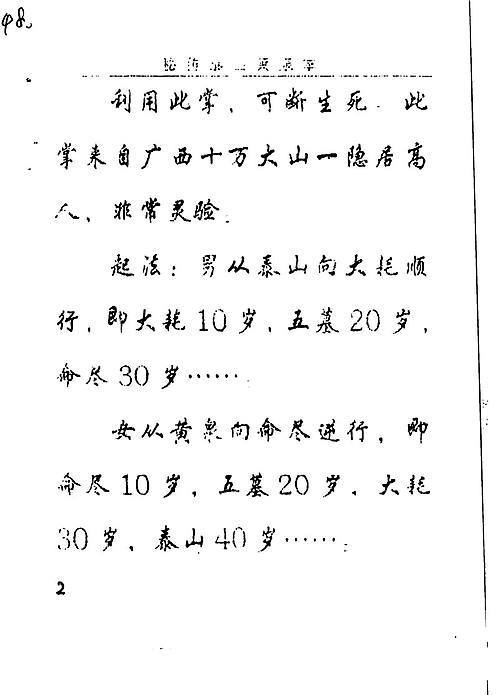 48.
利用此掌，可断生死．此
掌来自广西十万大山一隐居高
人，非常灵验．
起法：男从泰山向大耗顺
行，即大耗10岁，五墓20岁，
命尽30岁……
女从黄泉向命尽逆行，即
命尽10岁，五墓20岁，大耗
30岁，泰山40岁……．
2